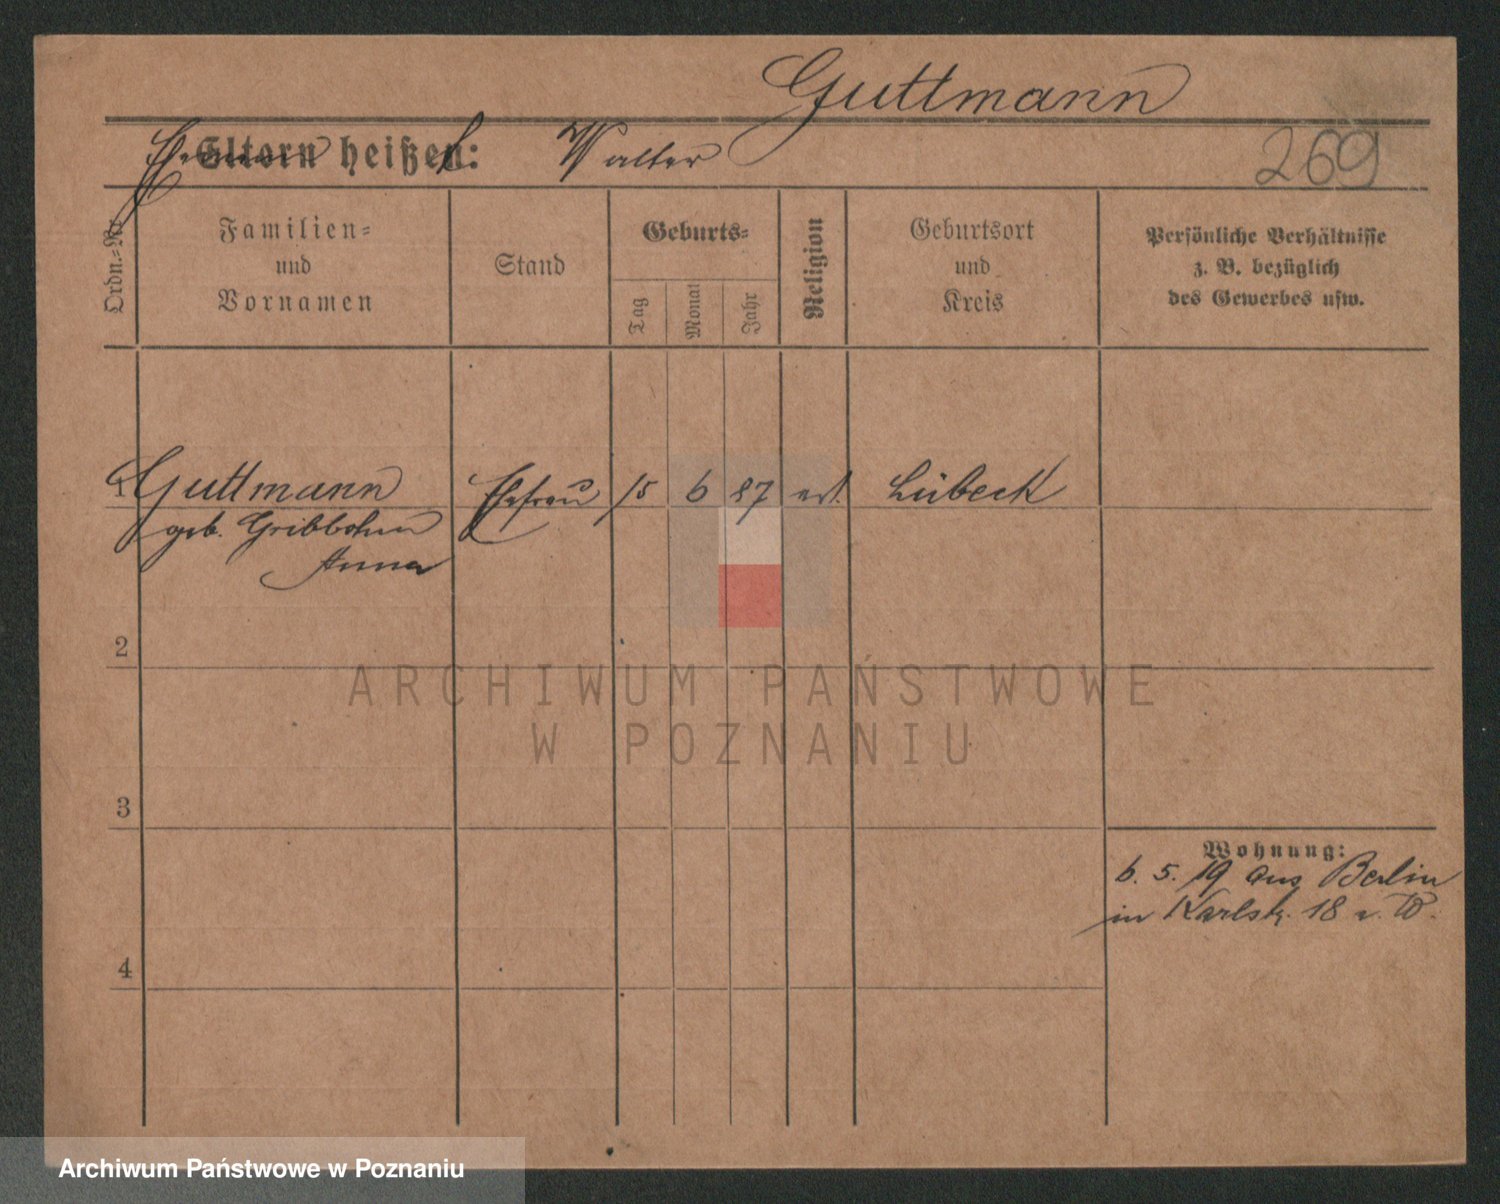 Guttmann
Ehemann heißt: Walter
269
Ordn.-Nr.
Familien-
und
Vornamen
Stand
Geburts-
Tag
Monat
Jahr
Religion
Geburtsort
und
Kreis
Persönliche Verhältnisse
z. B. bezüglich
des Gewerbes usw.
1 Guttmann Ehefrau 15 6 87 Lübeck
geb. Gribbohm
Anna
2
3
4
Wohnung:
6. 5. 19 aus Berlin
in Karlstr. 18 v. W.
ARCHIWUM PAŃSTWOWE
W POZNANIU
Archiwum Państwowe w Poznaniu